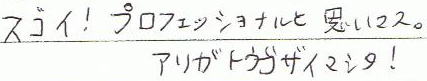 スゴイ! プロフェッショナルと思いマス。
アリガトウゴザイマシタ!